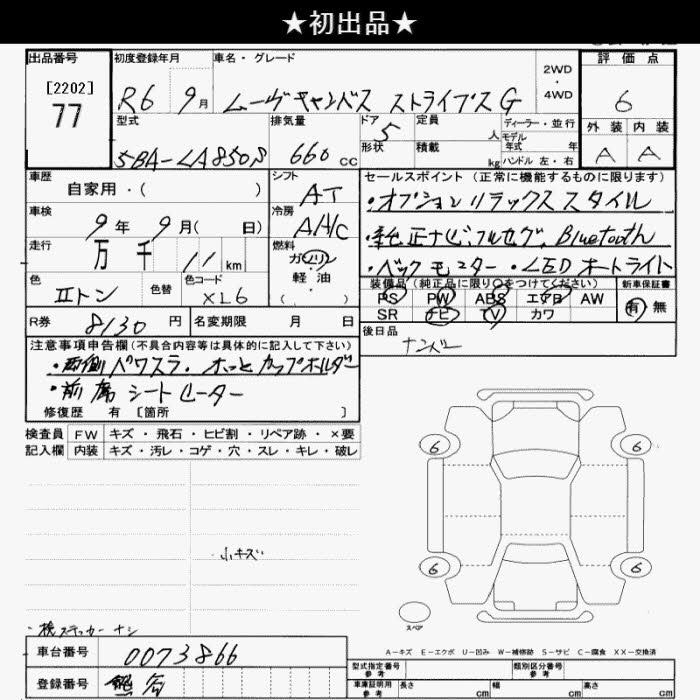 ★初出品★
出品番号
[2202]
77
初度登録年月
R6 9月
車名・グレード
ムーヴキャンバス ストライプスG
2WD
・
4WD
評価点
6
外装 内装
A A
型式
5BA-LA850S
排気量
660 cc
ドア
5
形状
定員
人
積載
kg
ディーラー・並行
モデル
年式 年
ハンドル 左・右
車歴
自家用・( )
シフト
AT
車検
9年 9月( 日)
冷房
AAC
走行
万 千 11 km
燃料
ガソリン
軽油
・
( )
色
IIトン
色替
色コード
XL6
R券
8130 円
名変期限 月 日
セールスポイント (正常に機能するものに限ります)
・オプションリラックススタイル
・純正ナビ,フルセグ,Bluetooth
・バックモニター・LEDオートライト
装備品(純正品に限り○をつけてください)
PS PW ABS エアB AW
SR ナビ TV カワ
新車保証書
有 無
後日品
ナンバー
注意事項申告欄(不具合内容等は具体的に記入して下さい)
・両側パワスラ.ホッとカップホルダー
・前席シートヒーター
修復歴 有 [箇所 ]
検査員 FW キズ・飛石・ヒビ割・リペア跡・×要
記入欄 内装 キズ・汚レ・コゲ・穴・スレ・キレ・破レ
小キズ
6 6
6 6
スペア
・検ステッカーナシ
A－キズ E－エクボ U－凹み W－補修跡 S－サビ C－腐食 XX－交換済
車台番号 0073866
登録番号 熊谷
型式指定番号
参考
類別区分番号
参考
車庫証明用
参考
長さ cm 幅 cm 高さ cm